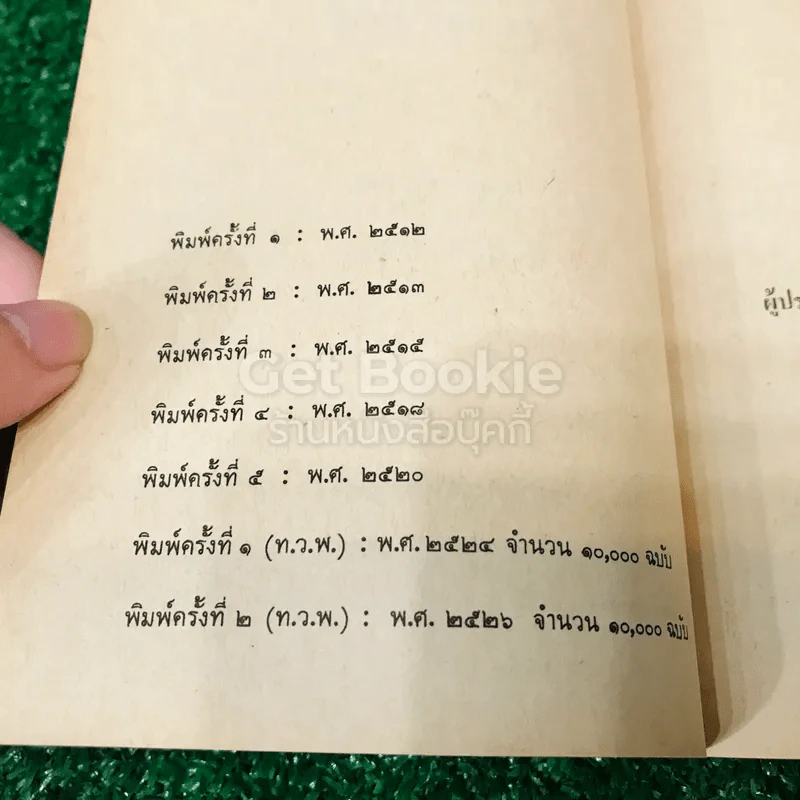 พิมพ์ครั้งที่ ๑ : พ.ศ. ๒๕๑๒
พิมพ์ครั้งที่ ๒ : พ.ศ. ๒๕๑๓
ผู้ปร
พิมพ์ครั้งที่ ๓ : พ.ศ. ๒๕๑๕
Get Bookie
พิมพ์ครั้งที่ ๔ : พ.ศ. ๒๕๑๘
ร้านหนังสือบุ๊คกี้
พิมพ์ครั้งที่ ๕ : พ.ศ. ๒๕๒๐
พิมพ์ครั้งที่ ๑ (ท.ว.พ.) : พ.ศ. ๒๕๒๔ จำนวน ๑๐,๐๐๐ ฉบับ
พิมพ์ครั้งที่ ๒ (ท.ว.พ.) : พ.ศ. ๒๕๒๖ จำนวน ๑๐,๐๐๐ ฉบับ